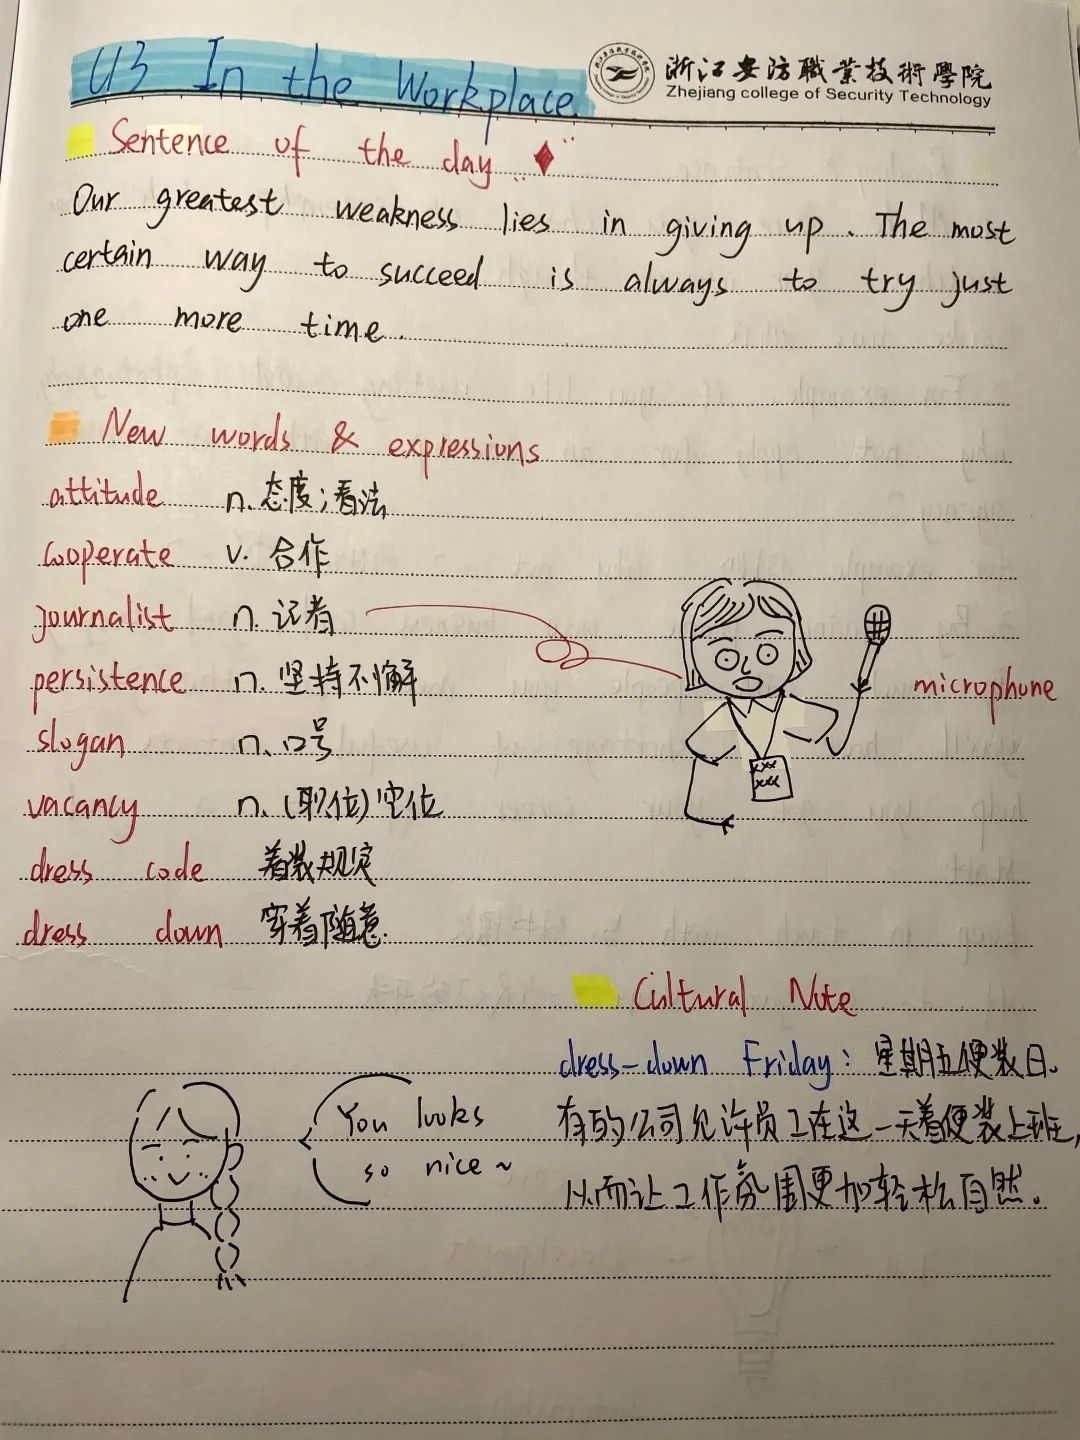 U3 In the Workplace
浙江安防職業技術學院
Zhejiang college of Security Technology
Sentence of the day
Our greatest weakness lies in giving up. The most
certain way to succeed is always to try just
one more time.
New words & expressions
attitude n. 态度；看法
cooperate v. 合作
journalist n. 记者
persistence n. 坚持不懈
microphone
slogan n. 口号
xxx
xxx
vacancy n. (职位)空位
dress code 着装规定
dress down 穿着随意.
Cultural Note
dress-down Friday: 星期五便装日。
有的公司允许员工在这一天着便装上班,
从而让工作氛围更加轻松自然。
You looks
so nice~